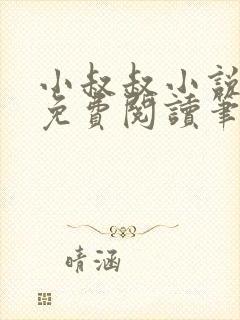 小叔叔小說
免費閱讀筆
晴涵